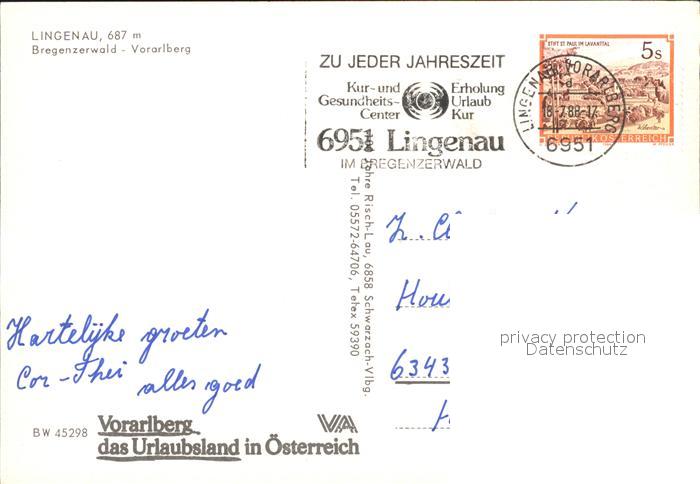 LINGENAU, 687 m
Bregenzerwald - Vorarlberg
ZU JEDER JAHRESZEIT
Kur- und
Gesundheits-
Center
Erholung
Urlaub
Kur
6951 Lingenau
IM BREGENZERWALD
STIFT ST. PAUL IM LAVANTTAL
5 S
REPUBLIK ÖSTERREICH
LINGENAU, VORARLBERG
6951
Risch-Lau, 6858 Schwarzach-Vlbg.
Tel. 05572-64706, Telex 59390
Hartelijke groeten
Cor-Thei
alles goed
Hou
6343
privacy protection
Datenschutz
BW 45298
Vorarlberg
das Urlaubsland in Österreich
VA